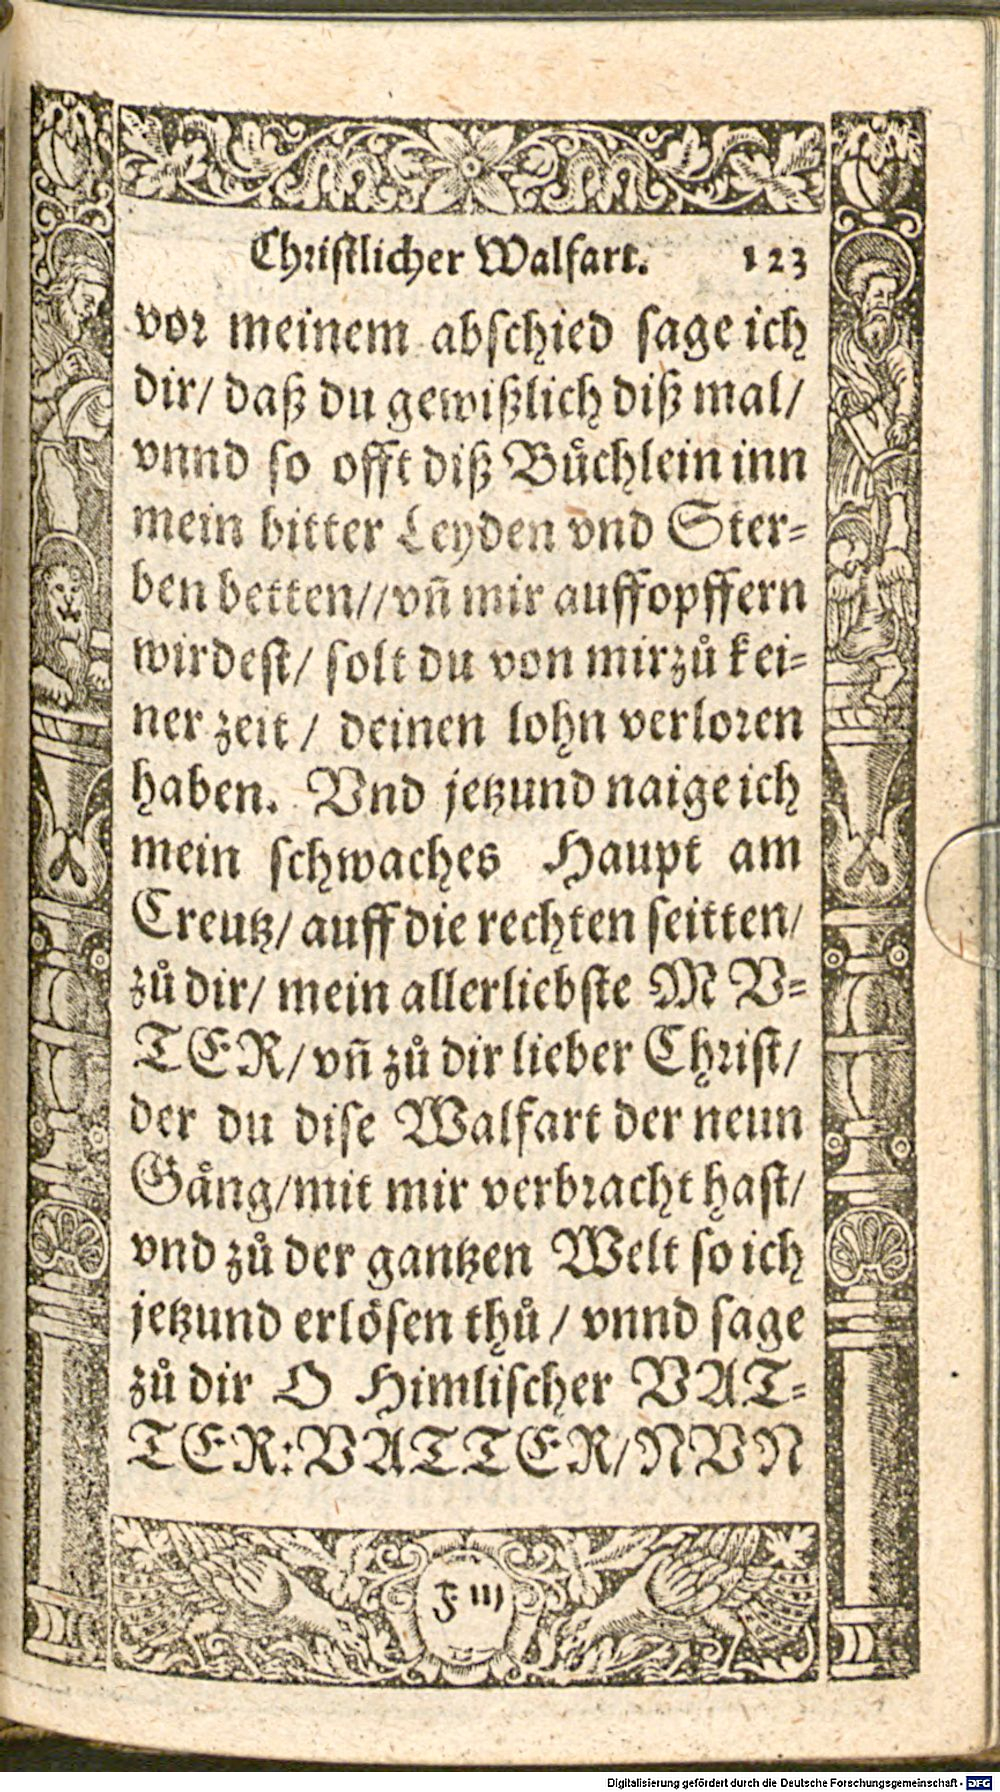 Christlicher Walfart. 123
vor meinem abschied sage ich
dir/ daß du gewißlich diß mal/
vnnd so offt diß Bůchlein inn
mein bitter Leyden vnd Ster-
ben betten//vñ mir auffopffern
wirdest/ solt du von mir zů kei-
ner zeit / deinen lohn verloren
haben. Vnd jetzund naige ich
mein schwaches Haupt am
Creutz/ auff die rechten seitten/
zů dir/ mein allerliebste MV-
TER/ vñ zů dir lieber Christ/
der du dise Walfart der neun
Gång/mit mir verbracht hast/
vnd zů der gantzen Welt so ich
jetzund erlösen thů / vnnd sage
zů dir O Himlischer VAT-
TER: VATTER/NVN
F iij
Digitalisierung gefördert durch die Deutsche Forschungsgemeinschaft - DFG